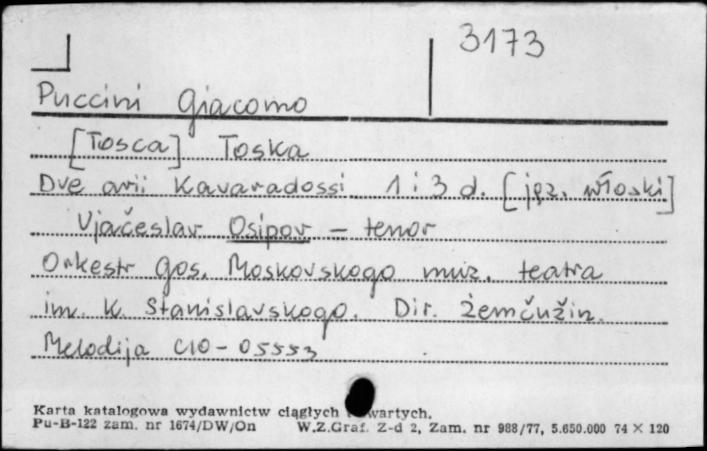 3173
Puccini Giacomo
[Tosca] Toska
Dve arii Kavaradossi 1 i 3 d. [jęz. włoski]
Vjačeslav Osipov - tenor
Orkestr gos. Moskovskogo muz. teatra
im. K. Stanislavskogo. Dir. Žemčužin.
Melodija C10-05553
Karta katalogowa wydawnictw ciągłych wartych.
Pu-B-122 zam. nr 1674/DW/On W.Z.Graf. Z-d 2, Zam. nr 988/77, 5.650.000 74 × 120